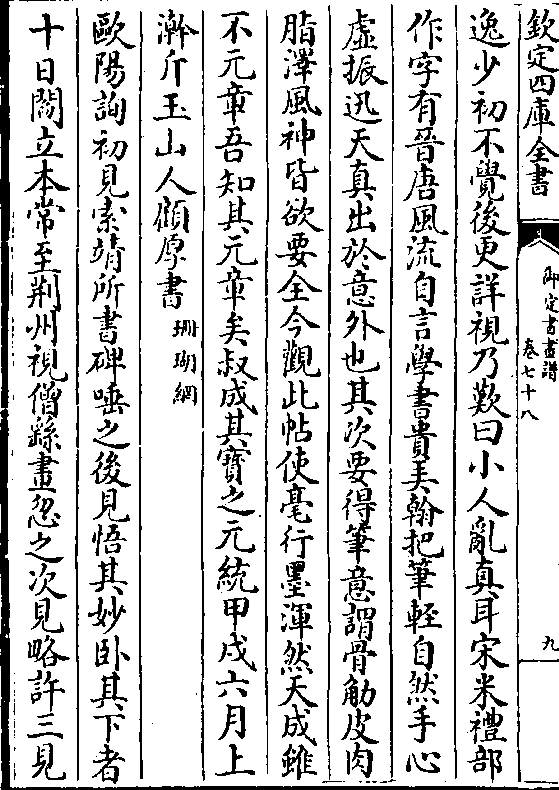 欽定四庫全書
御定書畫譜
卷七十八
九
逸少初不覺後更詳視乃歎曰小人亂真耳宋米禮部
作字有晉唐風流自言學書貴弄翰把筆輕自然手心
虛振迅天真出於意外也其次要得筆意謂骨觔皮肉
脂澤風神皆欲要全今觀此帖使毫行墨渾然天成雖
不元章吾知其元章矣叔成其寶之元統甲戌六月上
澣斤玉山人傾厚書珊瑚網
歐陽詢初見索靖所書碑唾之後見悟其妙卧其下者
十日閻立本常至荆州視僧繇畫忽之次見略許三見